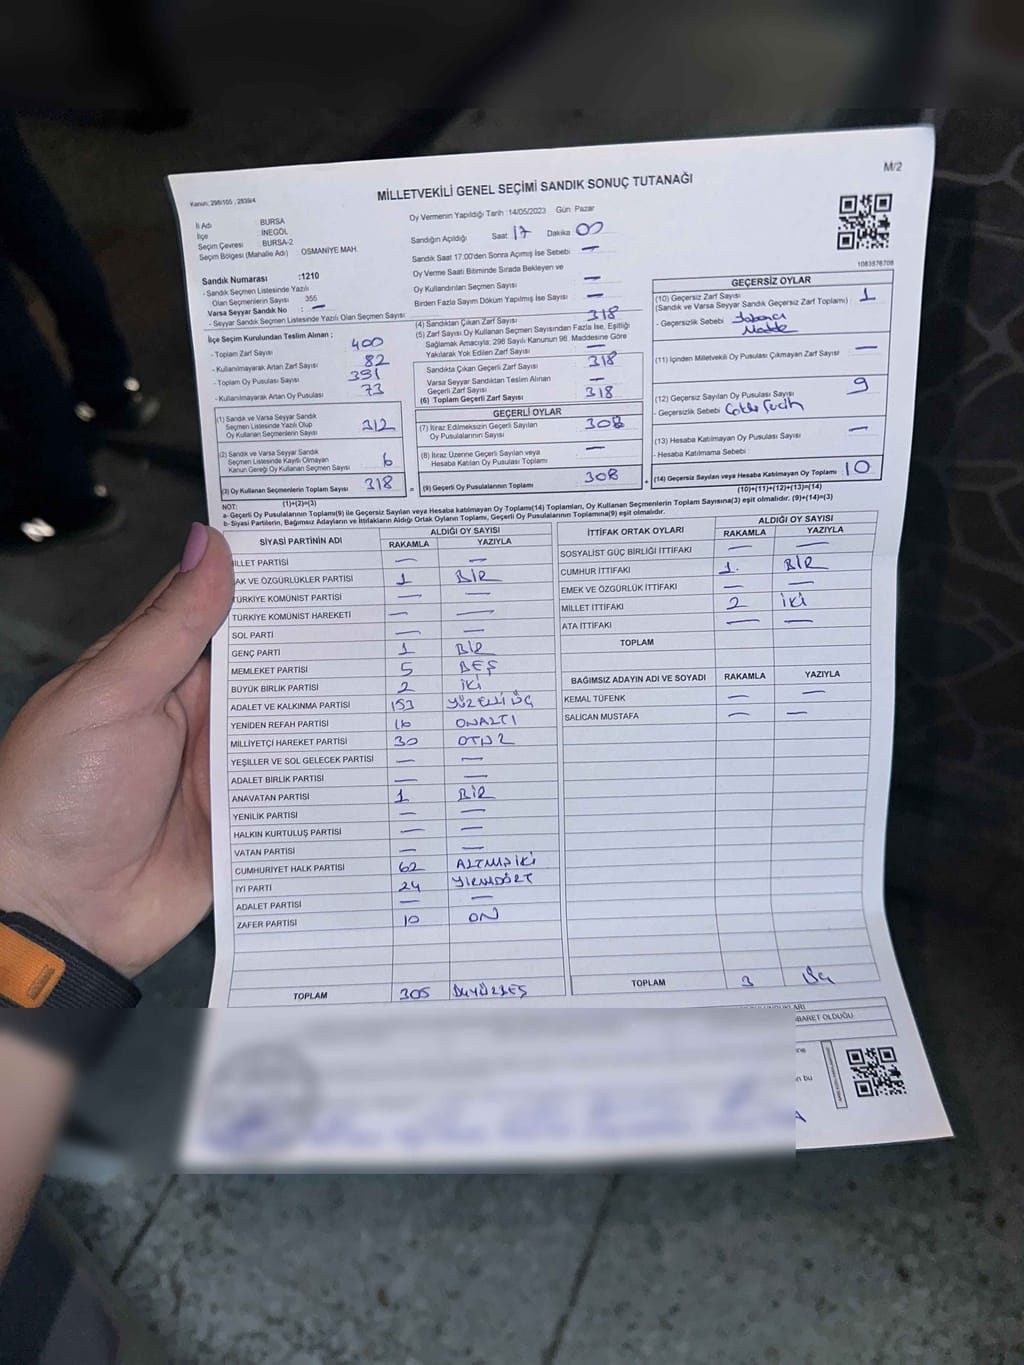 M/2
Kanun: 298/105 , 2839/4
MİLLETVEKİLİ GENEL SEÇİMİ SANDIK SONUÇ TUTANAĞI
İl Adı : BURSA
İlçe : İNEGÖL
Seçim Çevresi : BURSA-2
Seçim Bölgesi (Mahalle Adı) : OSMANİYE MAH.
Sandık Numarası :1210
- Sandık Seçmen Listesinde Yazılı
Olan Seçmenlerin Sayısı 355
Varsa Seyyar Sandık No : —
- Seyyar Sandık Seçmen Listesinde Yazılı Olan Seçmen Sayısı :
Oy Vermenin Yapıldığı Tarih :14/05/2023 Gün: Pazar
Sandığın Açıldığı Saat 17 Dakika 00
Sandık Saat 17:00'den Sonra Açılmış İse Sebebi —
Oy Verme Saati Bitiminde Sırada Bekleyen ve
Oy Kullandırılan Seçmen Sayısı —
Birden Fazla Sayım Döküm Yapılmış İse Sayısı —
1083578708
İlçe Seçim Kurulundan Teslim Alınan ;
- Toplam Zarf Sayısı 400
- Kullanılmayarak Artan Zarf Sayısı 82
- Toplam Oy Pusulası Sayısı 391
- Kullanılmayarak Artan Oy Pusulası 73
(1) Sandık ve Varsa Seyyar Sandık
Seçmen Listesinde Yazılı Olup
Oy Kullanan Seçmenlerin Sayısı 312
(2) Sandık ve Varsa Seyyar Sandık
Seçmen Listesinde Kayıtlı Olmayan
Kanun Gereği Oy Kullanan Seçmen Sayısı 6
(3) Oy Kullanan Seçmenlerin Toplam Sayısı 318
(1)+(2)=(3)
(4) Sandıktan Çıkan Zarf Sayısı 318
(5) Zarf Sayısı Oy Kullanan Seçmen Sayısından Fazla İse, Eşitliği
Sağlamak Amacıyla; 298 Sayılı Kanunun 98. Maddesine Göre
Yakılarak Yok Edilen Zarf Sayısı —
Sandıkta Çıkan Geçerli Zarf Sayısı 318
Varsa Seyyar Sandıktan Teslim Alınan
Geçerli Zarf Sayısı —
(6) Toplam Geçerli Zarf Sayısı 318
GEÇERLİ OYLAR
(7) İtiraz Edilmeksizin Geçerli Sayılan
Oy Pusulalarının Sayısı 308
(8) İtiraz Üzerine Geçerli Sayılan veya
Hesaba Katılan Oy Pusulası Toplamı —
= (9) Geçerli Oy Pusulalarının Toplamı 308
GEÇERSİZ OYLAR
(10) Geçersiz Zarf Sayısı
(Sandık ve Varsa Seyyar Sandık Geçersiz Zarf Toplamı) 1
- Geçersizlik Sebebi : Yabancı
Madde
(11) İçinden Milletvekili Oy Pusulası Çıkmayan Zarf Sayısı —
(12) Geçersiz Sayılan Oy Pusulası Sayısı 9
- Geçersizlik Sebebi
(13) Hesaba Katılmayan Oy Pusulası Sayısı —
- Hesaba Katılmama Sebebi :
+ (14) Geçersiz Sayılan veya Hesaba Katılmayan Oy Toplamı 10
(10)+(11)+(12)+(13)=(14)
NOT:
a- Geçerli Oy Pusulalarının Toplamı(9) ile Geçersiz Sayılan veya Hesaba katılmayan Oy Toplamı(14) Toplamları, Oy Kullanan Seçmenlerin Toplam Sayısına(3) eşit olmalıdır. (9)+(14)=(3)
b- Siyasi Partilerin, Bağımsız Adayların ve İttifakların Aldığı Ortak Oyların Toplamı, Geçerli Oy Pusulalarının Toplamına(9) eşit olmalıdır.
SİYASİ PARTİNİN ADI ALDIĞI OY SAYISI
RAKAMLA YAZIYLA
İLLET PARTİSİ — —
AK VE ÖZGÜRLÜKLER PARTİSİ 1 BİR
TÜRKİYE KOMÜNİST PARTİSİ — —
TÜRKİYE KOMÜNİST HAREKETİ — —
SOL PARTİ — —
GENÇ PARTİ 1 BİR
MEMLEKET PARTİSİ 5 BEŞ
BÜYÜK BİRLİK PARTİSİ 2 İKİ
ADALET VE KALKINMA PARTİSİ 153 YÜZELLİ ÜÇ
YENİDEN REFAH PARTİSİ 16 ONALTI
MİLLİYETÇİ HAREKET PARTİSİ 30 OTUZ
YEŞİLLER VE SOL GELECEK PARTİSİ — —
ADALET BİRLİK PARTİSİ — —
ANAVATAN PARTİSİ 1 BİR
YENİLİK PARTİSİ — —
HALKIN KURTULUŞ PARTİSİ — —
VATAN PARTİSİ — —
CUMHURİYET HALK PARTİSİ 62 ALTMIŞİKİ
İYİ PARTİ 24 YİRMİDÖRT
ADALET PARTİSİ — —
ZAFER PARTİSİ 10 ON
TOPLAM 305 ÜÇYÜZBEŞ
İTTİFAK ORTAK OYLARI ALDIĞI OY SAYISI
RAKAMLA YAZIYLA
SOSYALİST GÜÇ BİRLİĞİ İTTİFAKI — —
CUMHUR İTTİFAKI 1. BİR
EMEK VE ÖZGÜRLÜK İTTİFAKI — —
MİLLET İTTİFAKI 2 İKİ
ATA İTTİFAKI — —
TOPLAM
BAĞIMSIZ ADAYIN ADI VE SOYADI RAKAMLA YAZIYLA
KEMAL TÜFENK — —
SALİCAN MUSTAFA — —
TOPLAM 3 Üç
BARET OLDUĞU